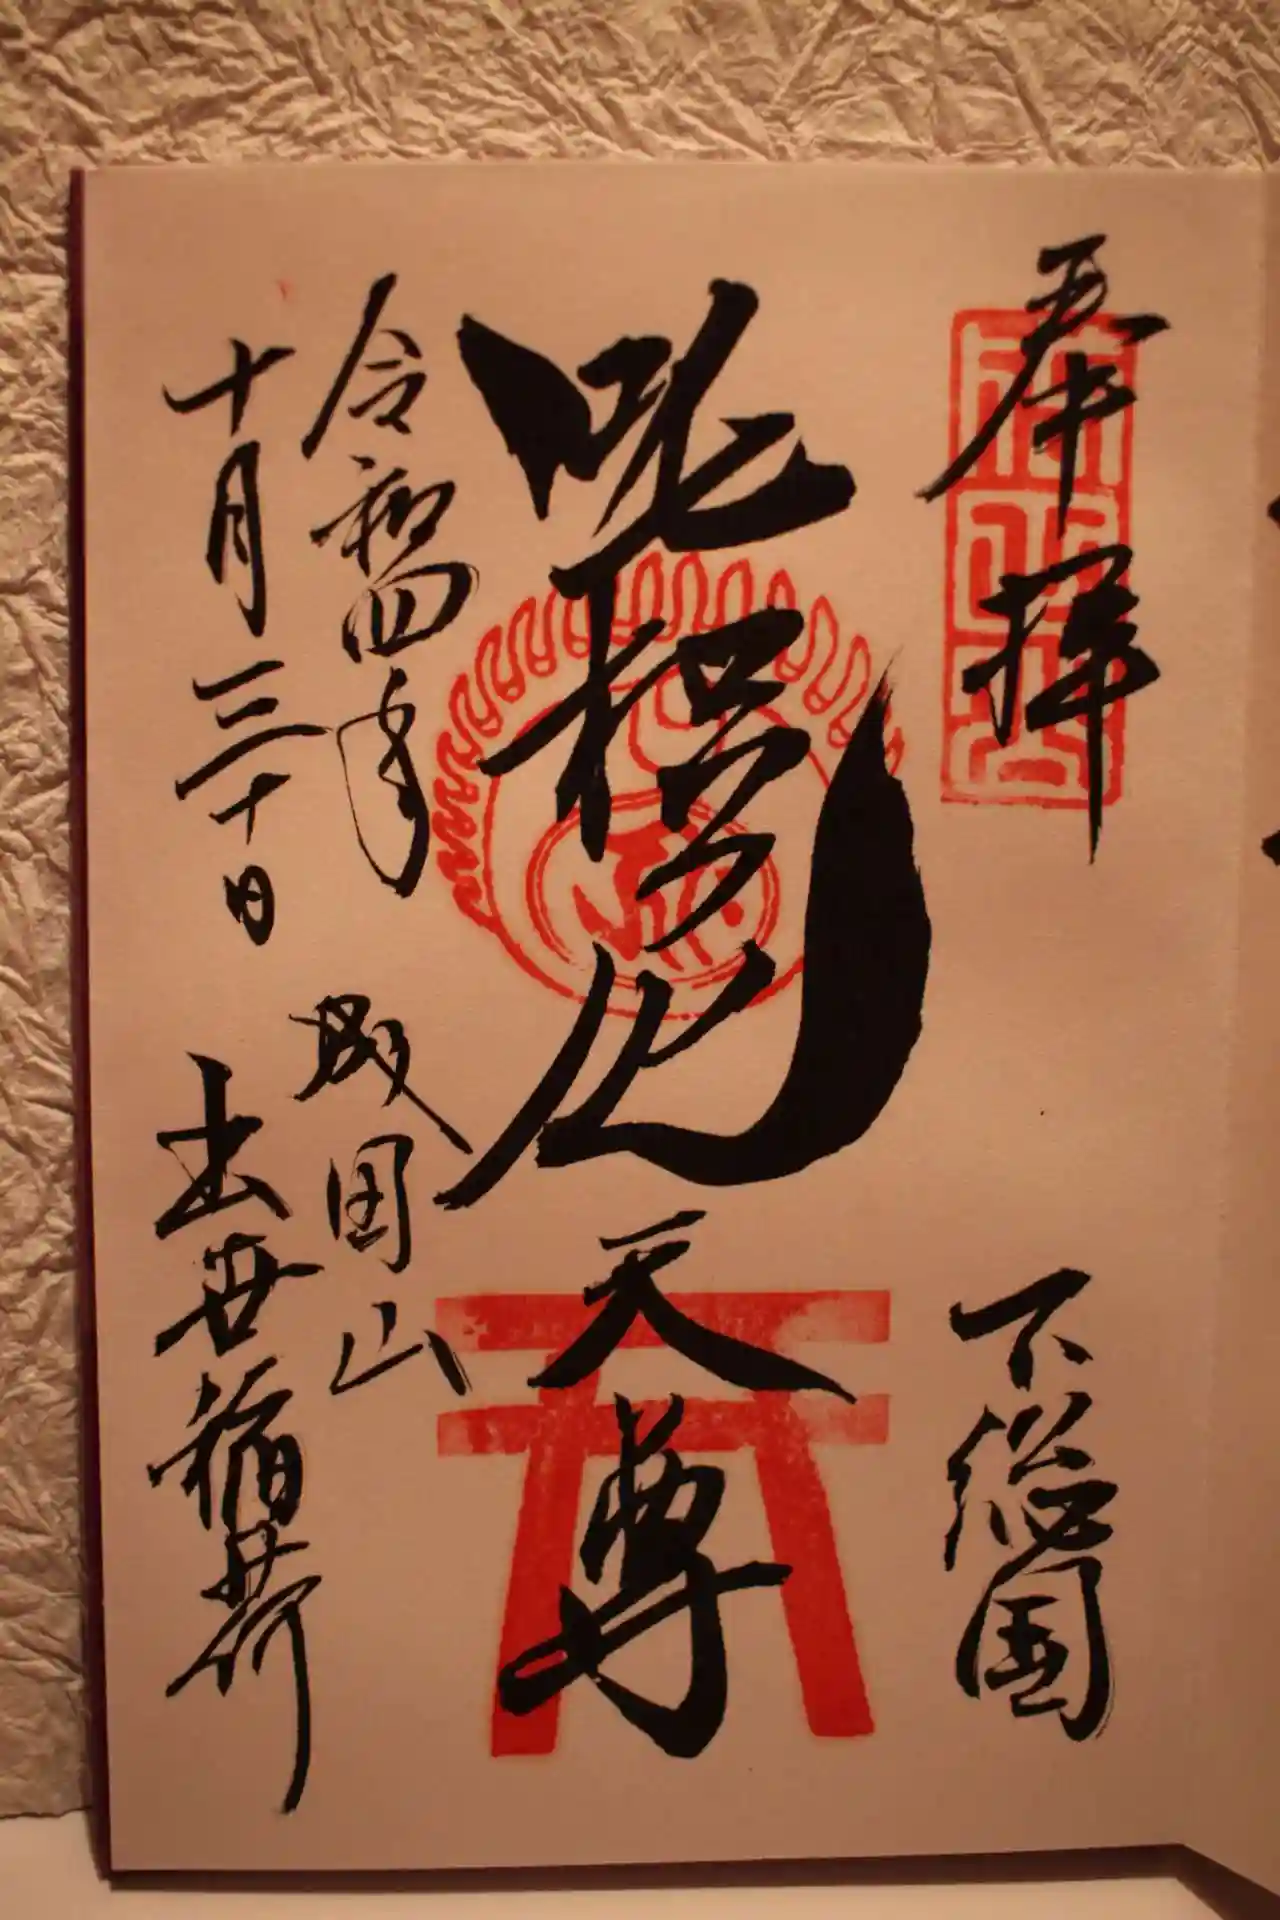 奉拝
下総国
吒枳尼天尊
令和四年
成田山
十月三十日
出世稲荷